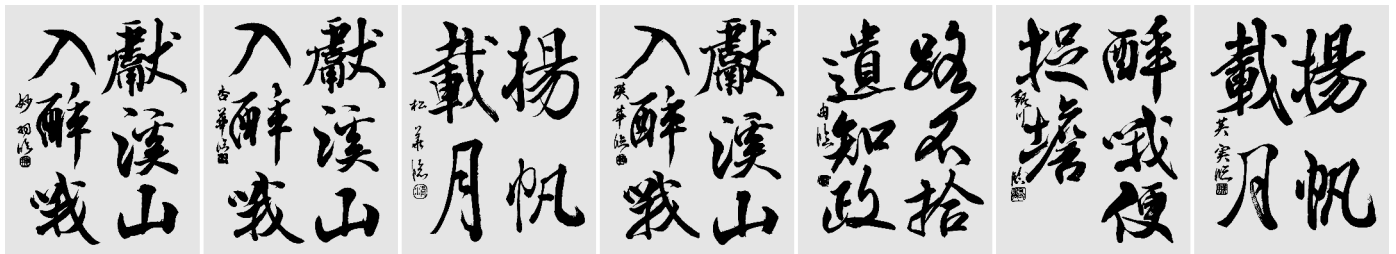 獻溪山
入醉哦
妙翔臨
獻溪山
入醉哦
杏華臨
揚帆
載月
松華臨
獻溪山
入醉哦
瑛華臨
路不拾
遺知政
由臨
醉哦便
捉蟾
揚帆
載月
英実臨